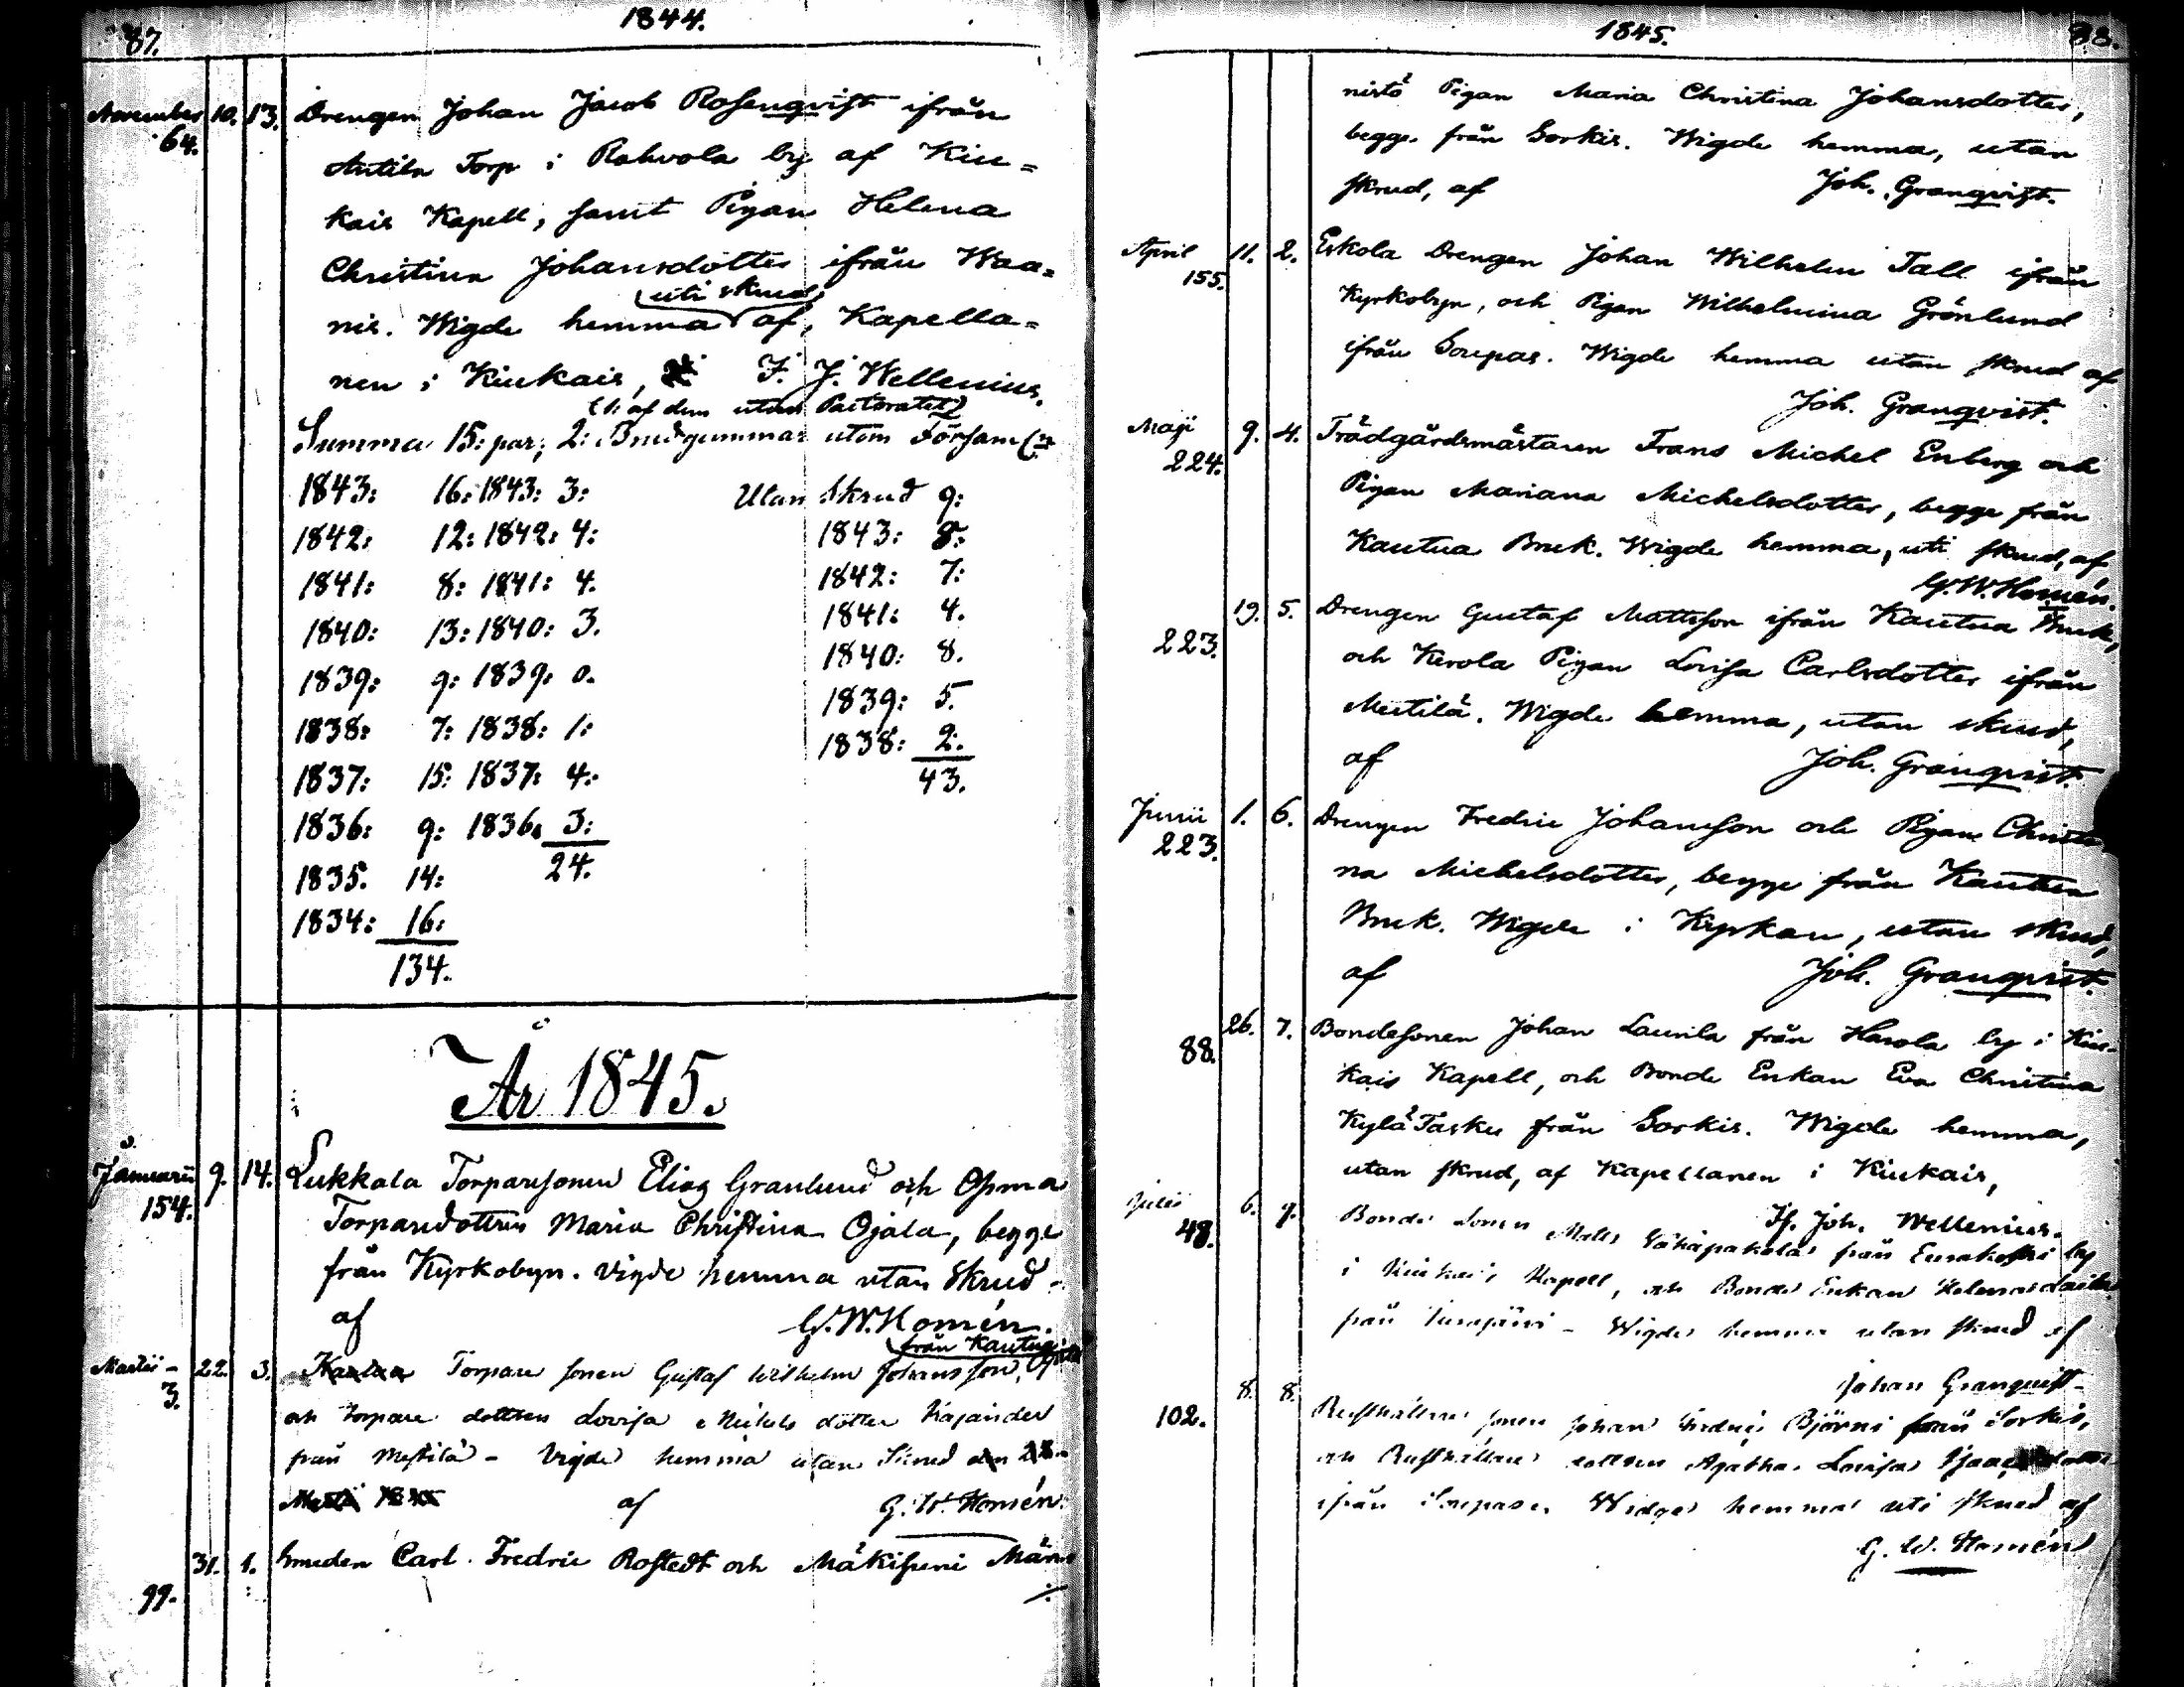 87.
1844.
November 10. 13. Drengen Johan Jacob Rosenqvist ifrån
64.
Antila Torp i Rahvola by af Kiu=
kais Kapell, samt Pigan Helena
Christina Johansdotter ifrån Waa=
uti skrud
nis. Wigde hemma af, Kapella=
nen i Kiukais, F. J. Wellenius.
(1: af dem utom Pastoratet)
Summa 15: par; 2: Brudgummar utom Församl:n
1843: 16: 1843: 3: Utan Skrud 9:
1842: 12: 1842: 4: 1843: 8:
1841: 8: 1841: 4. 1842: 7:
1840: 13: 1840: 3. 1841: 4.
1839: 9: 1839: 0. 1840: 8.
1838: 7: 1838: 1: 1839: 5.
1837: 15: 1837: 4: 1838: 2:
1836: 9: 1836: 3: 43.
1835. 14: 24.
1834: 16:
134.
År 1845.
Januarii 9. 14. Lukkala Torparsonen Elias Granlund och Osma
154.
Torparedottren Maria Christina Ojala, begge
från Kyrkobyn. Vigde hemma utan Skrud
af G. W. Homén.
från Kautua
Martii 22. 3. Kautua Torpare sonen Gustaf Wilhelm Johansson,
3.
och Torpare dottren Lovisa Michels dotter Kajander
från Mestilä - Vigde hemma utan Skrud den
af G. W. Homén.
31. 1. Smeden Carl Fredric Rostedt och Mäkisuni Män
99.
1845.
88.
nistö Pigan Maria Christina Johansdotter,
begge från Sorkis. Wigde hemma, utan
skrud, af Joh. Granqvist.
April 11. 2. Eskola Drengen Johan Wilhelm Tall ifrån
155.
Kyrkobyn, och Pigan Wilhelmina Grönlund
ifrån Soupas. Wigde hemma utan skrud af
Joh. Granqvist.
Maji 9. 4. Trädgårdsmästaren Frans Michel Enberg och
224.
Pigan Mariana Michelsdotter, begge från
Kautua Bruk. Wigde hemma, uti skrud, af
G. W. Homén.
19. 5. Drengen Gustaf Mattsson ifrån Kautua Bruk,
223.
och Kerola Pigan Lovisa Carlsdotter ifrån
Mestilä. Wigde hemma, utan skrud,
af Joh. Granqvist.
Junii 1. 6. Drengen Fredric Johansson och Pigan Christi
223.
na Michelsdotter, begge från Kautua
Bruk. Wigde i Kyrkan, utan skrud,
af Joh. Granqvist.
26. 7. Bondesonen Johan Laurila från Harola by i Kiu-
88.
kais Kapell, och Bonde Enkan Eva Christina
Kylä Tasku från Sorkis. Wigde hemma,
utan skrud, af Kapellanen i Kiukais,
Fr. Joh. Wellenius.
Julii 6. 7. Bonde Sonen Matts Vähäpakola från Eurakoski by
48.
i Kiukais Kapell, och Bonde Enkan Helena
från Eurajärvi - Wigde hemma utan skrud af
Johan Granqvist
8. 8. Rusthållare sonen Johan Fredric Björni från Sorkis,
102.
och Rusthållare dottren Agatha Lovisa
ifrån Soupas. Widge hemma uti skrud af
G. W. Homén